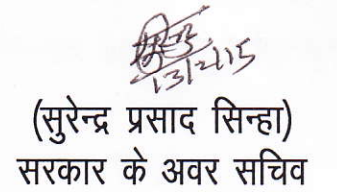 13/2/15
(सुरेन्द्र प्रसाद सिन्हा)
सरकार के अवर सचिव